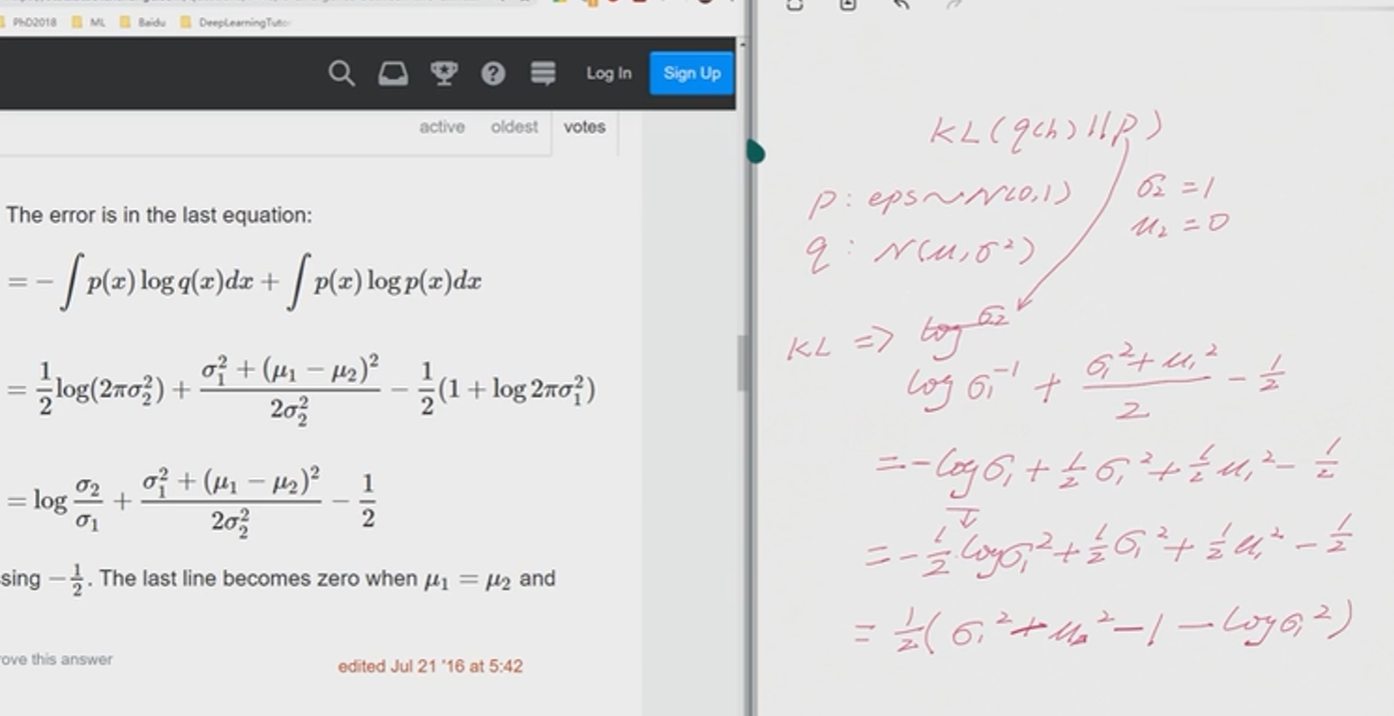 PhD2018 ML Baidu DeepLearningTutor
Log In Sign Up
active oldest votes
The error is in the last equation:
= − ∫ p(x) log q(x)dx + ∫ p(x) log p(x)dx
= 1/2 log(2πσ₂²) + (σ₁² + (μ₁ − μ₂)²)/(2σ₂²) − 1/2 (1 + log 2πσ₁²)
= log σ₂/σ₁ + (σ₁² + (μ₁ − μ₂)²)/(2σ₂²) − 1/2
sing −1/2. The last line becomes zero when μ₁ = μ₂ and
rove this answer
edited Jul 21 '16 at 5:42
KL(q(h)||p)
p: eps~N(0,1) σ₂ = 1
μ₂ = 0
q: N(μ,σ²)
KL => log σ₂
log σ₁⁻¹ + (σ₁² + μ₁²)/2 − 1/2
= −log σ₁ + 1/2 σ₁² + 1/2 μ₁² − 1/2
= −1/2 log σ₁² + 1/2 σ₁² + 1/2 μ₁² − 1/2
= 1/2 (σ₁² + μ₁² − 1 − log σ₁²)